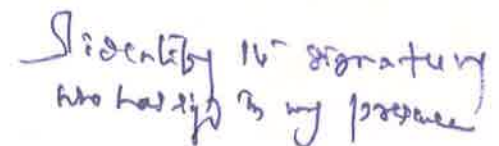 I identify the signature
who has sign in my presence